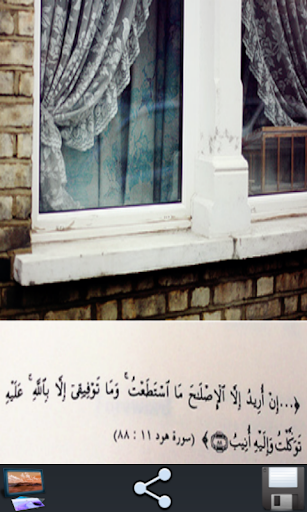 ...إِنْ أُرِيدُ إِلَّا ٱلْإِصْلَٰحَ مَا ٱسْتَطَعْتُ ۚ وَمَا تَوْفِيقِىٓ إِلَّا بِٱللَّهِ ۚ عَلَيْهِ
تَوَكَّلْتُ وَإِلَيْهِ أُنِيبُ ﴿٨٨﴾ (سورة هود ١١ : ٨٨)